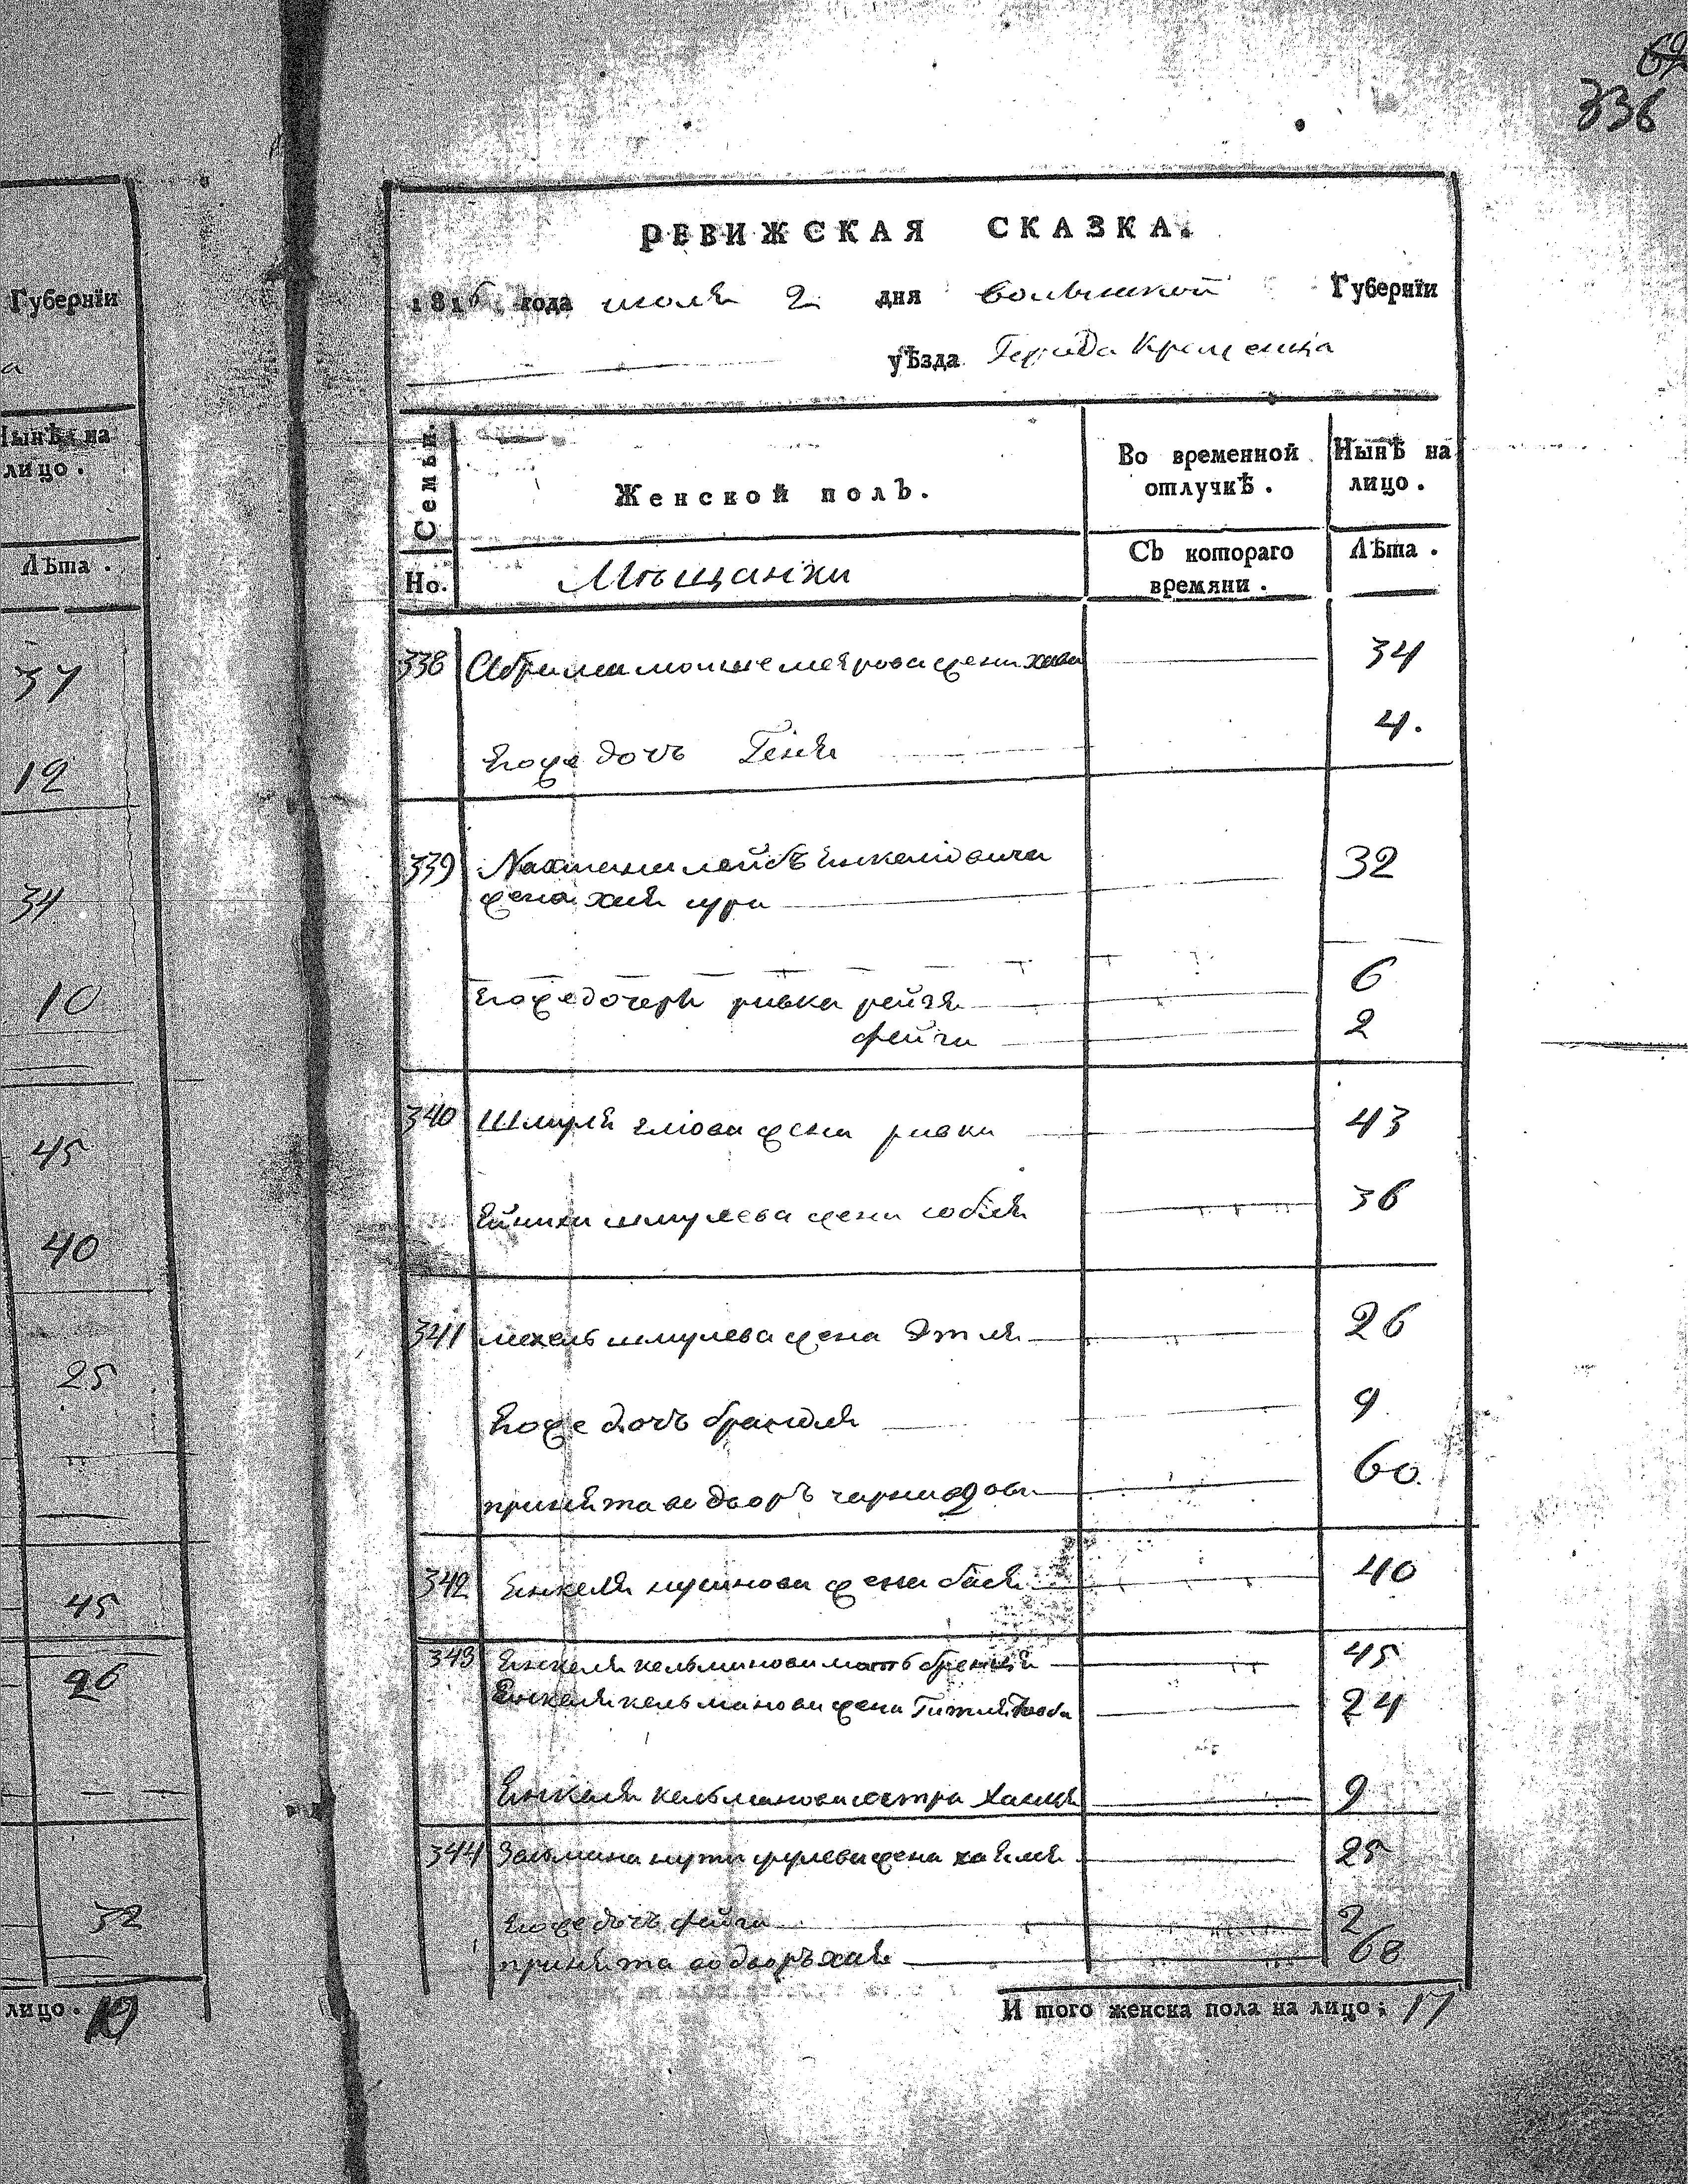 62
336
Губернїи
а
Нынѣ на
лицо.
Лѣта.
37
12
34
10
45
40
25
45
26
32
лицо. 10
РЕВИЖСКАЯ СКАЗКА.
1816 года июля 2 дня волынской Губернїи
уѣзда Города Кременца
Семьи.
Женской полъ.
Во временной отлучкѣ.
Нынѣ на лицо.
Но.
Мѣщанки
Съ котораго времяни.
Лѣта.
338 Абрама мошке меярова жена хава 34
Егоже дочь Геня 4.
339 Нахмана лейбъ Енкелiовича 32
жена хая сура
Егоже дочери ривка рейзя 6
фейга 2
340 Шмуля элiова жена ривка 43
шмулева жена собля 36
341 мехель шмулева жена Этля 26
Егоже дочь брандля 9
принята во дворъ чарна 60
342 Енкеля нусинова жена бася 40
343 Енкеля кельманова мать 45
Енкеля кельманова жена Гитля 24
Енкеля кельманова сестра Ханця 9
344 Залмана жена 25
Егоже дочь фейга 2
принята во дворъ хая 68
И того женска пола на лицо; 17